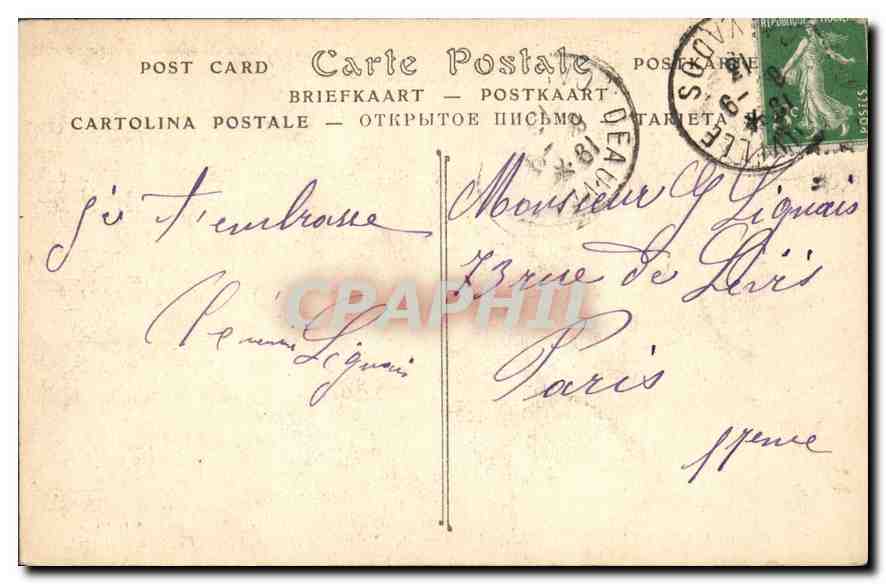 POST CARD Carte Postale POSTKARTE
BRIEFKAART — POSTKAART
CARTOLINA POSTALE — ОТКРЫТОЕ ПИСЬМО — TARJETA
REPUBLIQUE FRANÇAISE
POSTES
DEAUVILLE
CALVADOS
Je t'embrasse
Lignais
Monsieur G Lignais
73 rue de Lévis
Paris
17eme
CPAPHIL